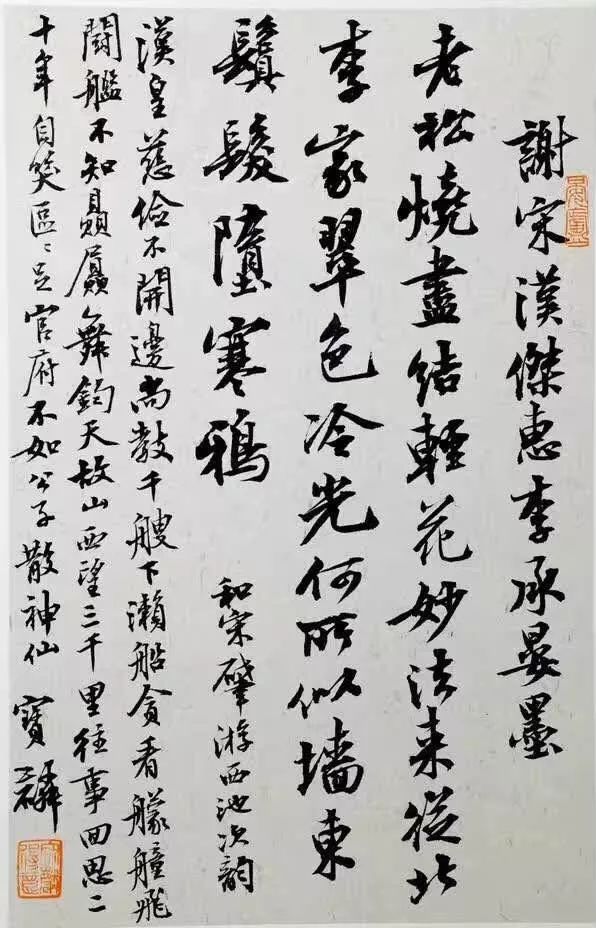 謝宋漢傑惠李承晏墨
老松燒盡結輕花妙法來從北
李家翠色冷光何所似墻東
鬒髮墮寒鴉
和宋肇游西池次韻
漢皇慈儉不開邊尚教千艘下瀨船貪看艨艟飛
鬭艦不知贔屭舞鈞天故山西望三千里往事回思二
十年自笑區〻足官府不如公子散神仙 寶